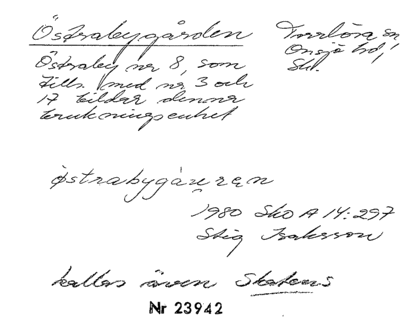 Östrabygården
Torrlösa sn
Onsjö hd,
Sk.
Östraby nr 8, som
tills. med nr 3 och
17 bildar denna
brukningsenhet
östrabygår̥e̥n
1980 Sko A 14:297
Stig Isaksson
kallas även Skatans
Nr 23942